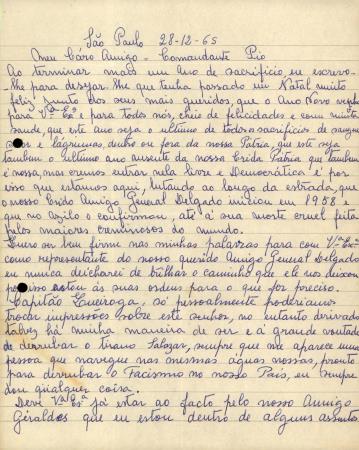 São Paulo 28-12-65
Meu Cáro Amigo - Comandante Pio
Ao terminar mais um Ano de sacrificio, eu escrevo-
lhe para desejar-lhe que tenha passado um Natal muito
feliz junto dos seus mais queridos, que o Ano Novo
para Vª Eª e para todos nós, cheio de felicidades e com muita
saude, que este ano seja o ultimo de todos os sacrificios de sangue
e lágrimas, dentro ou fora da nossa Patria, que este seja
tambem o ultimo ano ausente da nossa Crida Patria que tambem
é nossa, mas cremos entrar nela livre e Democratica é por
isso que estamos aqui, lutando ao longo da estrada, que
o nosso Crido Amigo General Delgado iniciou em 1958 e
que no Azilo o confirmou, até á sua morte cruel feita
pelos maiores creminosos do mundo.
Quero ser bem firme nas minhas palavras para com Vª Exª
como representante do nosso querido Amigo General Delgado
eu nunca deicharei de trilhar o caminho que ele nos deixou
por isso estou ás suas ordens para o que for preciso.
Capitão Queiroga, só pessoalmente poderiamos
trocar impressões sobre este senhor, no entanto derivado
talvez há minha maneira de ser e á grande vontade
de derrubar o tirano Salazar, sempre que me aparece uma
pessoa que navegue nas mesmas águas nossas, pronto
para derrubar o Facismo no nosso País, eu sempre
dou qualquer coisa.
Deve Vª Eª já estar ao facto pelo nosso Amigo
Geraldes que eu estou dentro de alguns assuntos